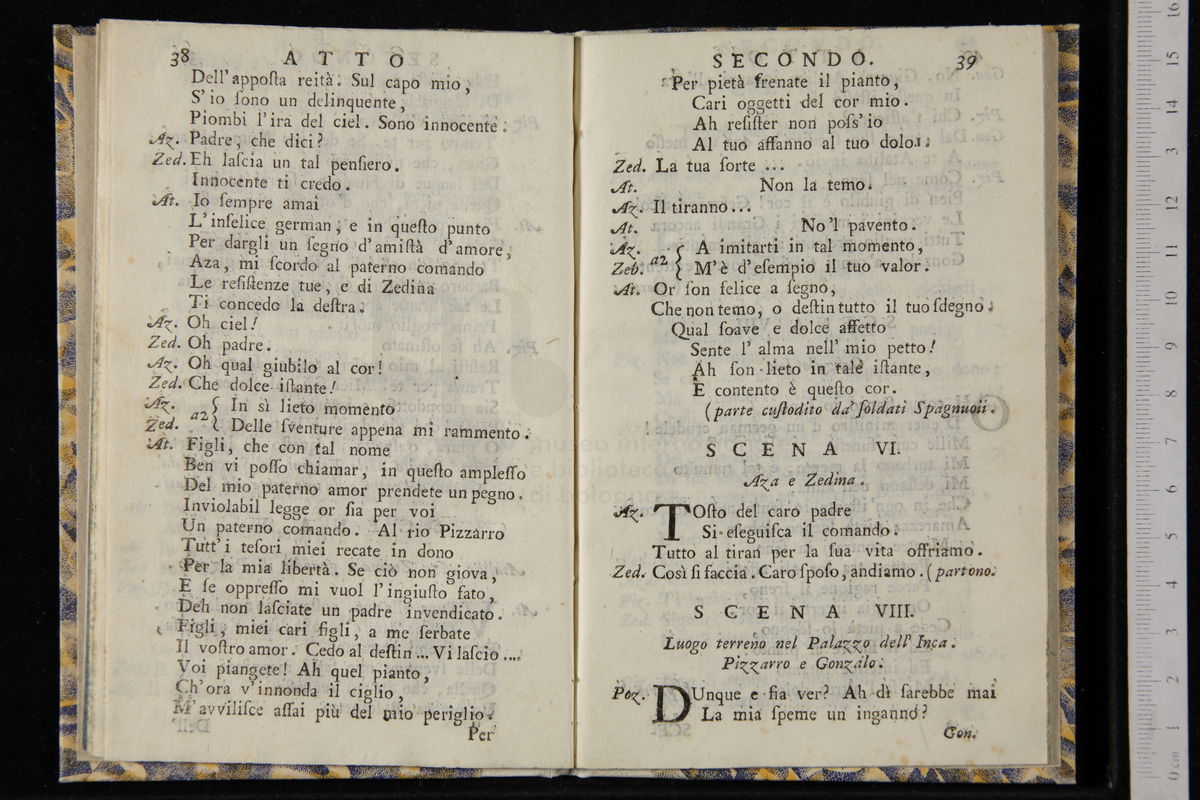 38 ATTO
Dell' apposta reità. Sul capo mio,
S' io sono un delinquente,
Piombi l'ira del ciel. Sono innocente.
Az. Padre, che dici?
Zed. Eh lascia un tal pensiero.
Innocente ti credo.
At. Io sempre amai
L' infelice german, e in questo punto
Per dargli un segno d'amistà d'amore,
Aza, mi scordo al paterno comando
Le resistenze tue, e di Zedina
Ti concedo la destra.
Az. Oh ciel!
Zed. Oh padre.
Az. Oh qual giubilo al cor!
Zed. Che dolce istante!
Az. a2 { In sì lieto momento
Zed. Delle sventure appena mi rammento.
At. Figli, che con tal nome
Ben vi posso chiamar, in questo amplesso
Del mio paterno amor prendete un pegno.
Inviolabil legge or sia per voi
Un paterno comando. Al rio Pizzarro
Tutt' i tesori miei recate in dono
Per la mia libertà. Se ciò non giova,
E se oppresso mi vuol l'ingiusto fato,
Deh non lasciate un padre invendicato.
Figli, miei cari figli, a me serbate
Il vostro amor. Cedo al destin ... Vi lascio ....
Voi piangete! Ah quel pianto,
Ch'ora v'innonda il ciglio,
M'avvilisce assai più del mio periglio.
Per
SECONDO. 39
Per pietà frenate il pianto,
Cari oggetti del cor mio.
Ah resister non poss' io
Al tuo affanno al tuo dolor.
Zed. La tua sorte ...
At. Non la temo.
Az. Il tiranno ...
At. No'l pavento.
Az. a2 { A imitarti in tal momento,
Zeb. M'è d'esempio il tuo valor.
At. Or son felice a segno,
Che non temo, o destin tutto il tuo sdegno.
Qual soave e dolce affetto
Sente l' alma nell' mio petto!
Ah son lieto in tale istante,
E contento è questo cor.
(parte custodito da' soldati Spagnuoli.
SCENA VI.
Aza e Zedina.
Az. TOsto del caro padre
Si eseguisca il comando.
Tutto al tiran per la sua vita offriamo.
Zed. Così si faccia. Caro sposo, andiamo. (partono.
SCENA VIII.
Luogo terreno nel Palazzo dell' Inca.
Pizzarro e Gonzalo.
Poz. DUnque e fia ver? Ah dì sarebbe mai
La mia speme un inganno?
Gon.